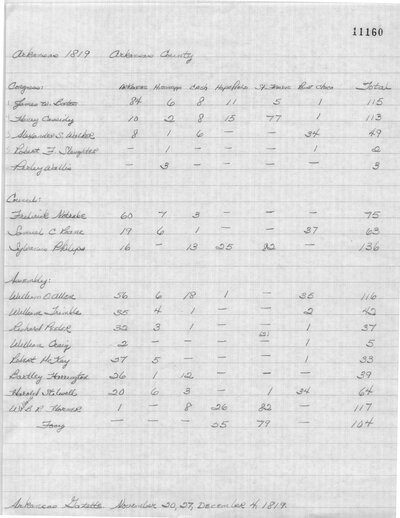 11160
Arkansas 1819 Arkansas County
Congress: Arkansas Cash St. Francis Total
James W. Bates 84 6 8 11 5 1 115
Henry Cassidy 10 2 8 15 77 1 113
Alexander S. Walker 8 1 6 — — 34 49
Robert F. Slaughter — 1 — — — 1 2
Perley Wallis — 3 — — — — 3
Council:
Frederick Notrebe 60 7 3 — — — 75
Samuel C. Roane 19 6 1 — — 37 63
Sylvanus Philips 16 — 13 25 82 — 136
Assembly:
William O Allen 56 6 18 1 — 35 116
William Trimble 35 4 1 — — 2 42
Richard 32 3 1 — — 1 37
William Craig 2 — — — (2) 1 5
Robert McKay 27 5 — — — 1 33
Bartley Harrington 26 1 12 — — — 39
Harold Stilwell 20 6 3 — 1 34 64
W. B. R. Horner 1 — 8 26 82 — 117
Fong — — — 25 79 — 104
Arkansas Gazette November 20, 27, December 4, 1819.